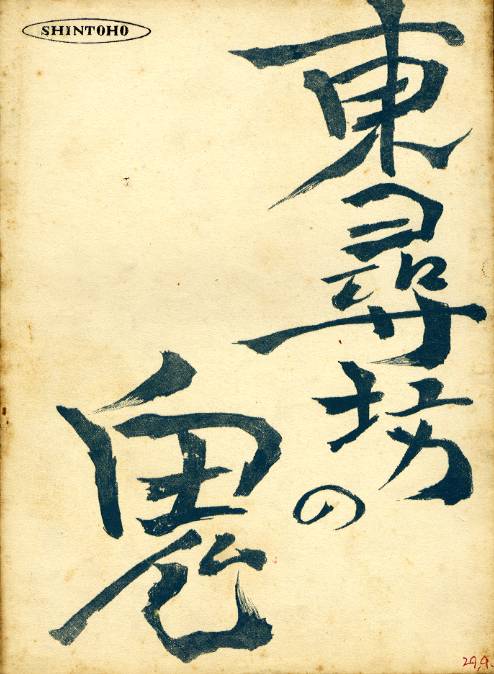 SHINTOHO
東尋坊の
鬼
29.9.